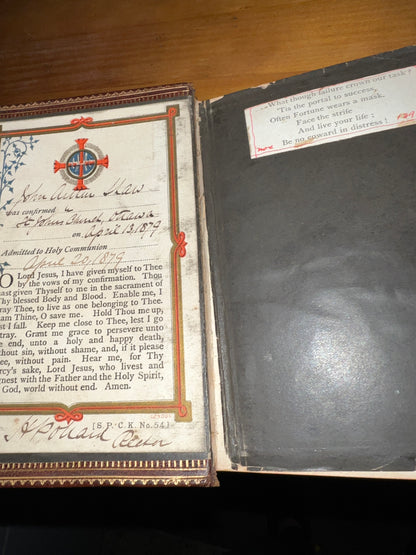 John Arthur Shaw
was confirmed
St John's Church, Ottawa
on April 13, 1879
Admitted to Holy Communion
April 20, 1879
O Lord Jesus, I have given myself to Thee
by the vows of my confirmation. Thou
hast given Thyself to me in the sacrament of
Thy blessed Body and Blood. Enable me, I
pray Thee, to live as one belonging to Thee.
am Thine, O save me. Hold Thou me up,
st I fall. Keep me close to Thee, lest I go
tray. Grant me grace to persevere unto
e end, unto a holy and happy death,
thout sin, without shame, and, if it please
ee, without pain. Hear me, for Thy
rcy's sake, Lord Jesus, who livest and
gnest with the Father and the Holy Spirit,
God, world without end. Amen.
[S.P.C.K. No. 54]
H Pollard Rector
What though failure crown our task?
'Tis the portal to success,
Often Fortune wears a mask,
Face the strife
And live your life;
Be no coward in distress!